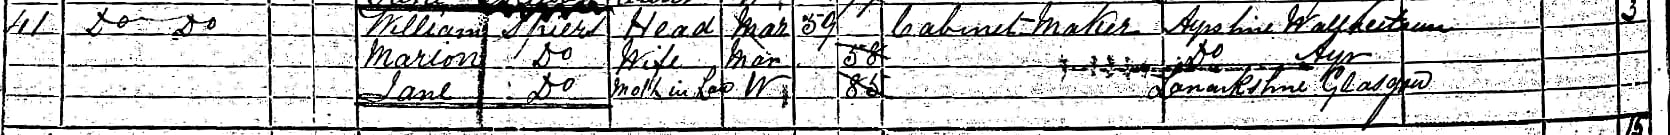 41 Do Do William Spiers Head Mar 59 Cabinet-Maker Ayrshire Wallacetown 3
Marion Do Wife Mar 58 Do Ayr
Jane Do Moth in Law W 85 Lanarkshire Glasgow
15